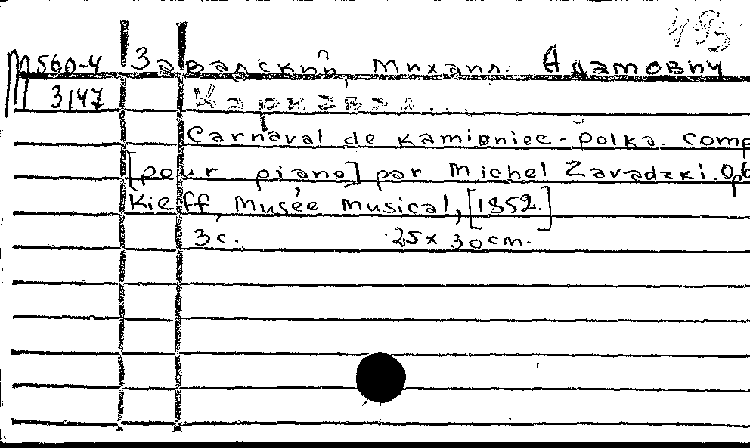 493
М560-4 Завадский, Михаил Адамович
3147 Карнавал...
Carnaval de Kamieniec-Polka. Comp
[pour piano] par Michel Zavadzki. Op6
Kieff, Musée musical, [1852.]
3 с. 25x30 cm.